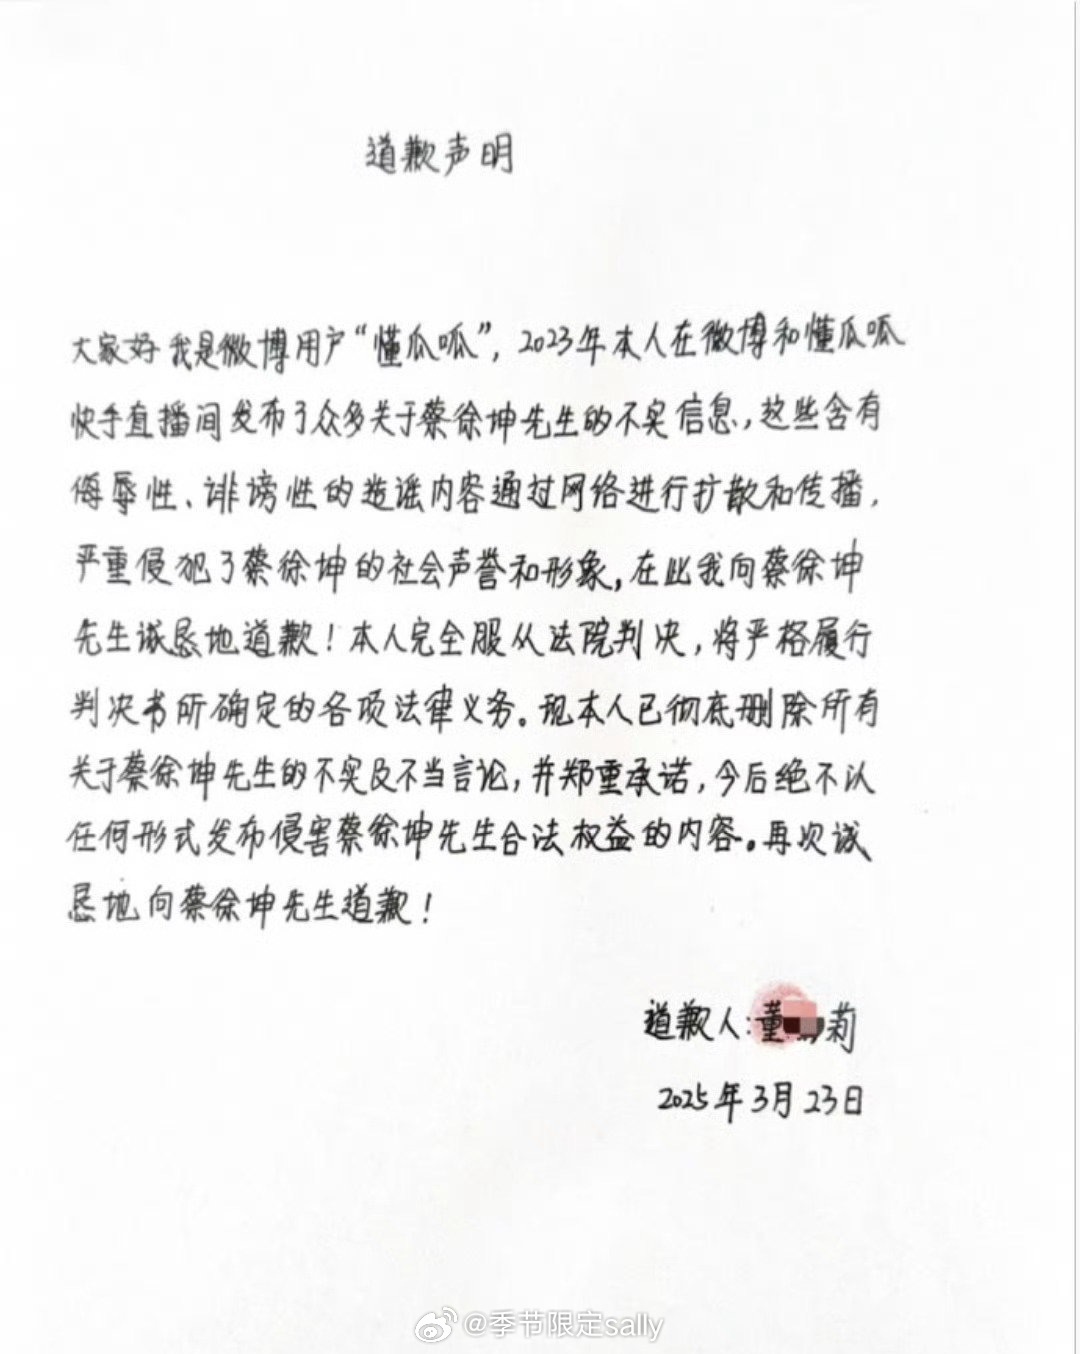 道歉声明
大家好我是微博用户“懂瓜呱”，2023年本人在微博和懂瓜呱
快手直播间发布了众多关于蔡徐坤先生的不实信息，这些含有
侮辱性、诽谤性的造谣内容通过网络进行扩散和传播，
严重侵犯了蔡徐坤的社会声誉和形象，在此我向蔡徐坤
先生诚恳地道歉！本人完全服从法院判决，将严格履行
判决书所确定的各项法律义务。现本人已彻底删除所有
关于蔡徐坤先生的不实及不当言论，并郑重承诺，今后绝不以
任何形式发布侵害蔡徐坤先生合法权益的内容。再次诚
恳地向蔡徐坤先生道歉！
道歉人：董莉
2025年3月23日
@季节限定sally